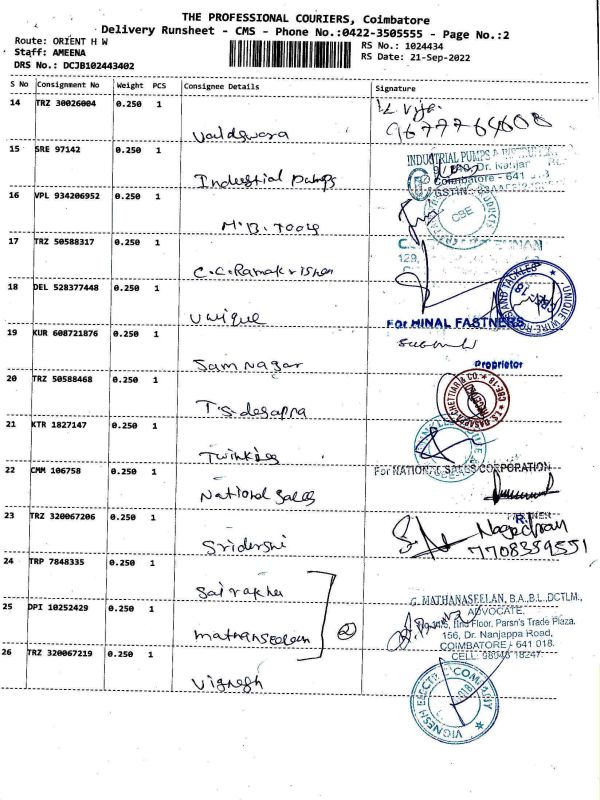 THE PROFESSIONAL COURIERS, Coimbatore
Delivery Runsheet - CMS - Phone No.:0422-3505555 - Page No.:2
Route: ORIENT H W
RS No.: 1024434
Staff: AMEENA
RS Date: 21-Sep-2022
DRS No.: DCJB102443402
S No Consignment No Weight PCS Consignee Details Signature
14 TRZ 30026004 0.250 1
15 SRE 97142 0.250 1
INDUSTRIAL PUMPS &
Dr. Nanjap
Industrial pumps
Coimbatore - 641 018
16 VPL 934206952 0.250 1
CBE
M.B. Tools
17 TRZ 50588317 0.250 1
C.C. Ramakrishnan
18 DEL 528377448 0.250 1
UNIQUE WIRE ROPES AND TACKLES
Unique
For HINAL FASTNERS
19 KUR 608721876 0.250 1
Samnagar
Proprietor
20 TRZ 50588468 0.250 1
T.S. DASAPPA CHETTIAR & CO. CBE-18
T.S. desappa
21 KTR 1827147 0.250 1
Twinkles
22 CMM 106758 0.250 1
For NATIONAL SALES CORPORATION
National Sales
23 TRZ 320067206 0.250 1
Nagachray
7708359551
24 TRP 7848335 0.250 1
G. MATHANASEELAN, B.A.,B.L.,DCTLM.,
25 DPI 10252429 0.250 1
ADVOCATE,
IInd Floor, Parsn's Trade Plaza,
mathanseelan 2
156, Dr. Nanjappa Road,
COIMBATORE - 641 018.
26 TRZ 320067219 0.250 1
CELL: 98048 18247
Vignesh
VIGNESH ELECTRIC COMPANY